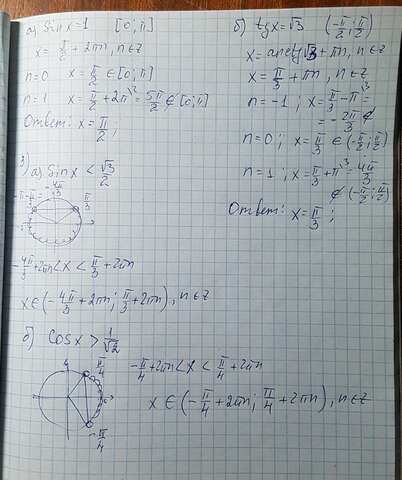 а) Sin x = 1 [0; π]
x = π/2 + 2πn, n ∈ z
n=0 x = π/2 ∈ [0; π]
n=1 x = π/2 + 2π^\2 = 5π/2 ∉ [0; π]
Ответ: x = π/2 ;
б) tg x = √3 (-π/2; π/2)
x = arctg √3 + πn, n ∈ z
x = π/3 + πn, n ∈ z
n = -1 ; x = π/3 - π^\3 =
= - 2π/3 ∉
n = 0 ; x = π/3 ∈ (-π/2; π/2)
n = 1 ; x = π/3 + π^\3 = 4π/3
∉ (-π/2; π/2)
Ответ: x = π/3 ;
3) а) Sin x < √3/2
-4π/3
-π - π/3 =
π/3
-4π/3 + 2πn < x < π/3 + 2πn
x ∈ (-4π/3 + 2πn; π/3 + 2πn), n ∈ z
б) Cos x > 1/√2
π/4
-π/4 + 2πn < x < π/4 + 2πn
x ∈ (-π/4 + 2πn; π/4 + 2πn), n ∈ z
-π/4